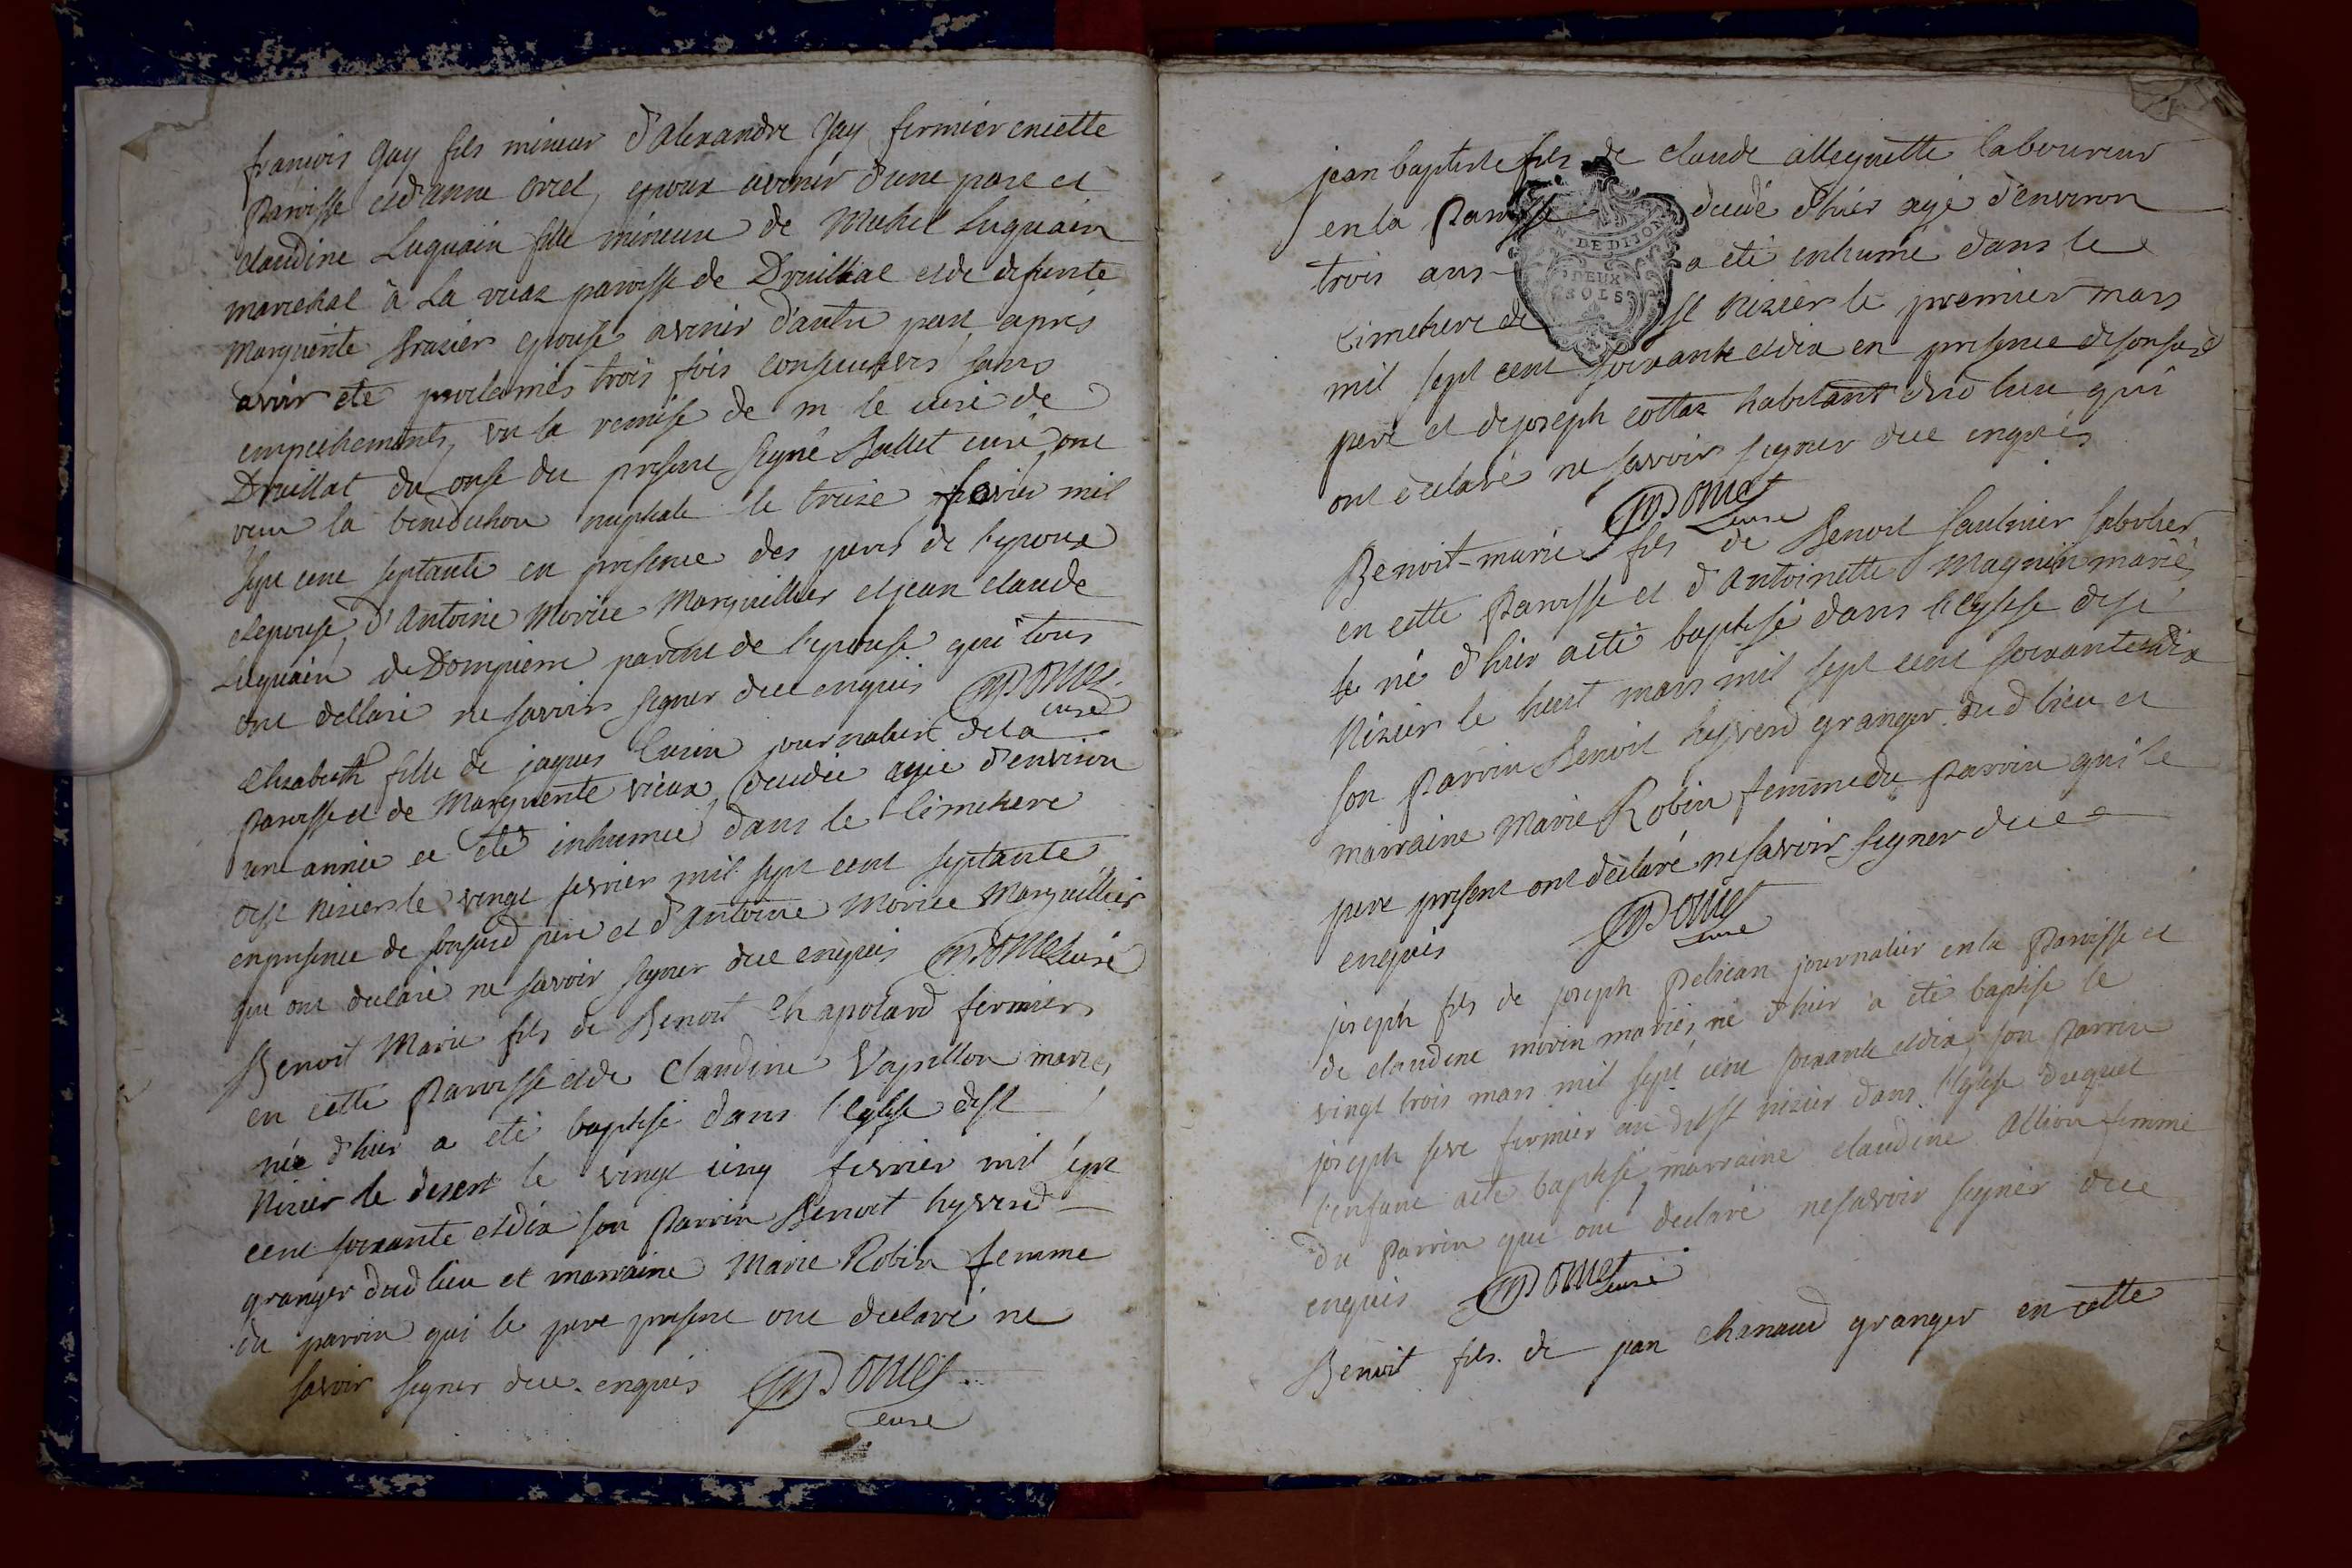 françois Gay fils mineur d'alexandre Gay fermier en cette
Paroisse et d'anne orcel, epoux avenir d'une part et
claudine Luquain fille mineure de Michel Luquain
marechal à La ruaz paroisse de Druillat et de defunte
Marguerite Brazier epouse avenir d'autre part apres
avoir eté proclamés trois fois consecutives sans
empechements, vu la remise de m le curé de
Druillat du onse du present signé Bullet curé, ont
reçu la benediction nuptiale le treize fevrier mil
sept cent septante en presence des peres de l'epoux
et epouse, d'Antoine Morice Marguillier et jean claude
Luquain de Dompierre parent de l'epouse qui tous
ont declaré ne savoir signer de ce enquis
curé
Elisabeth fille de jaques Cusin journalier de la
Paroisse et de Marguerite vieux, decedée agée d'environ
une année a eté inhumée dans le Cimetiere
de st Nizier le vingt fevrier mil sept cent septante
en presence de son susd pere et d'Antoine Morice Marguillier
qui ont declaré ne savoir signer de ce enquis curé
Benoit Marie fils de Benoit Chapolard fermier
en cette Paroisse et de Claudine Vapillon mariés,
née d'hier a eté baptisé dans l'eglise de st
Nizier le desert le vingt cinq fevrier mil sept
cent soixante et dix son Parrin Benoit hyvend
granger dud lieu et marraine Marie Robin femme
du parrin qui le pere present ont declaré ne
savoir signer de ce enquis
curé
jean baptiste fils de claude alleguette laboureur
en la Paroisse decedé d'hier agé d'environ
trois ans a eté inhumé dans le
cimetiere de st Nizier le premier mars
mil sept cent soixante et dix en presence de son susd
pere et de joseph cottaz habitant dud lieu qui
ont declarés ne savoir signer de ce enquis
N. DE DIJON
DEUX
SOLS
curé
Benoit-marie fils de Benoit Saulnier sabotier
en cette Paroisse et d'Antoinette Magnin mariés
né d'hier a eté baptisé dans l'eglise de st
Nizier le huit mars mil sept cent soixante et dix
son Parrin Benoit hyvend granger dud lieu et
marraine Marie Robin femme du Parrin qui le
pere present ont declaré ne savoir signer de ce
enquis
curé
joseph fils de joseph Pelican journalier en la Paroisse et
de claudine morin mariés, né d'hier a eté baptisé le
vingt trois mars mil sept cent soixante et dix, son Parrin
joseph seve fermier au dit st nizier dans l'eglise duquel
l'enfant a eté baptisé, marraine claudine Allion femme
du Parrin qui ont declaré ne savoir signer de ce
enquis curé
Benoit fils de jean chanaud granger en cette